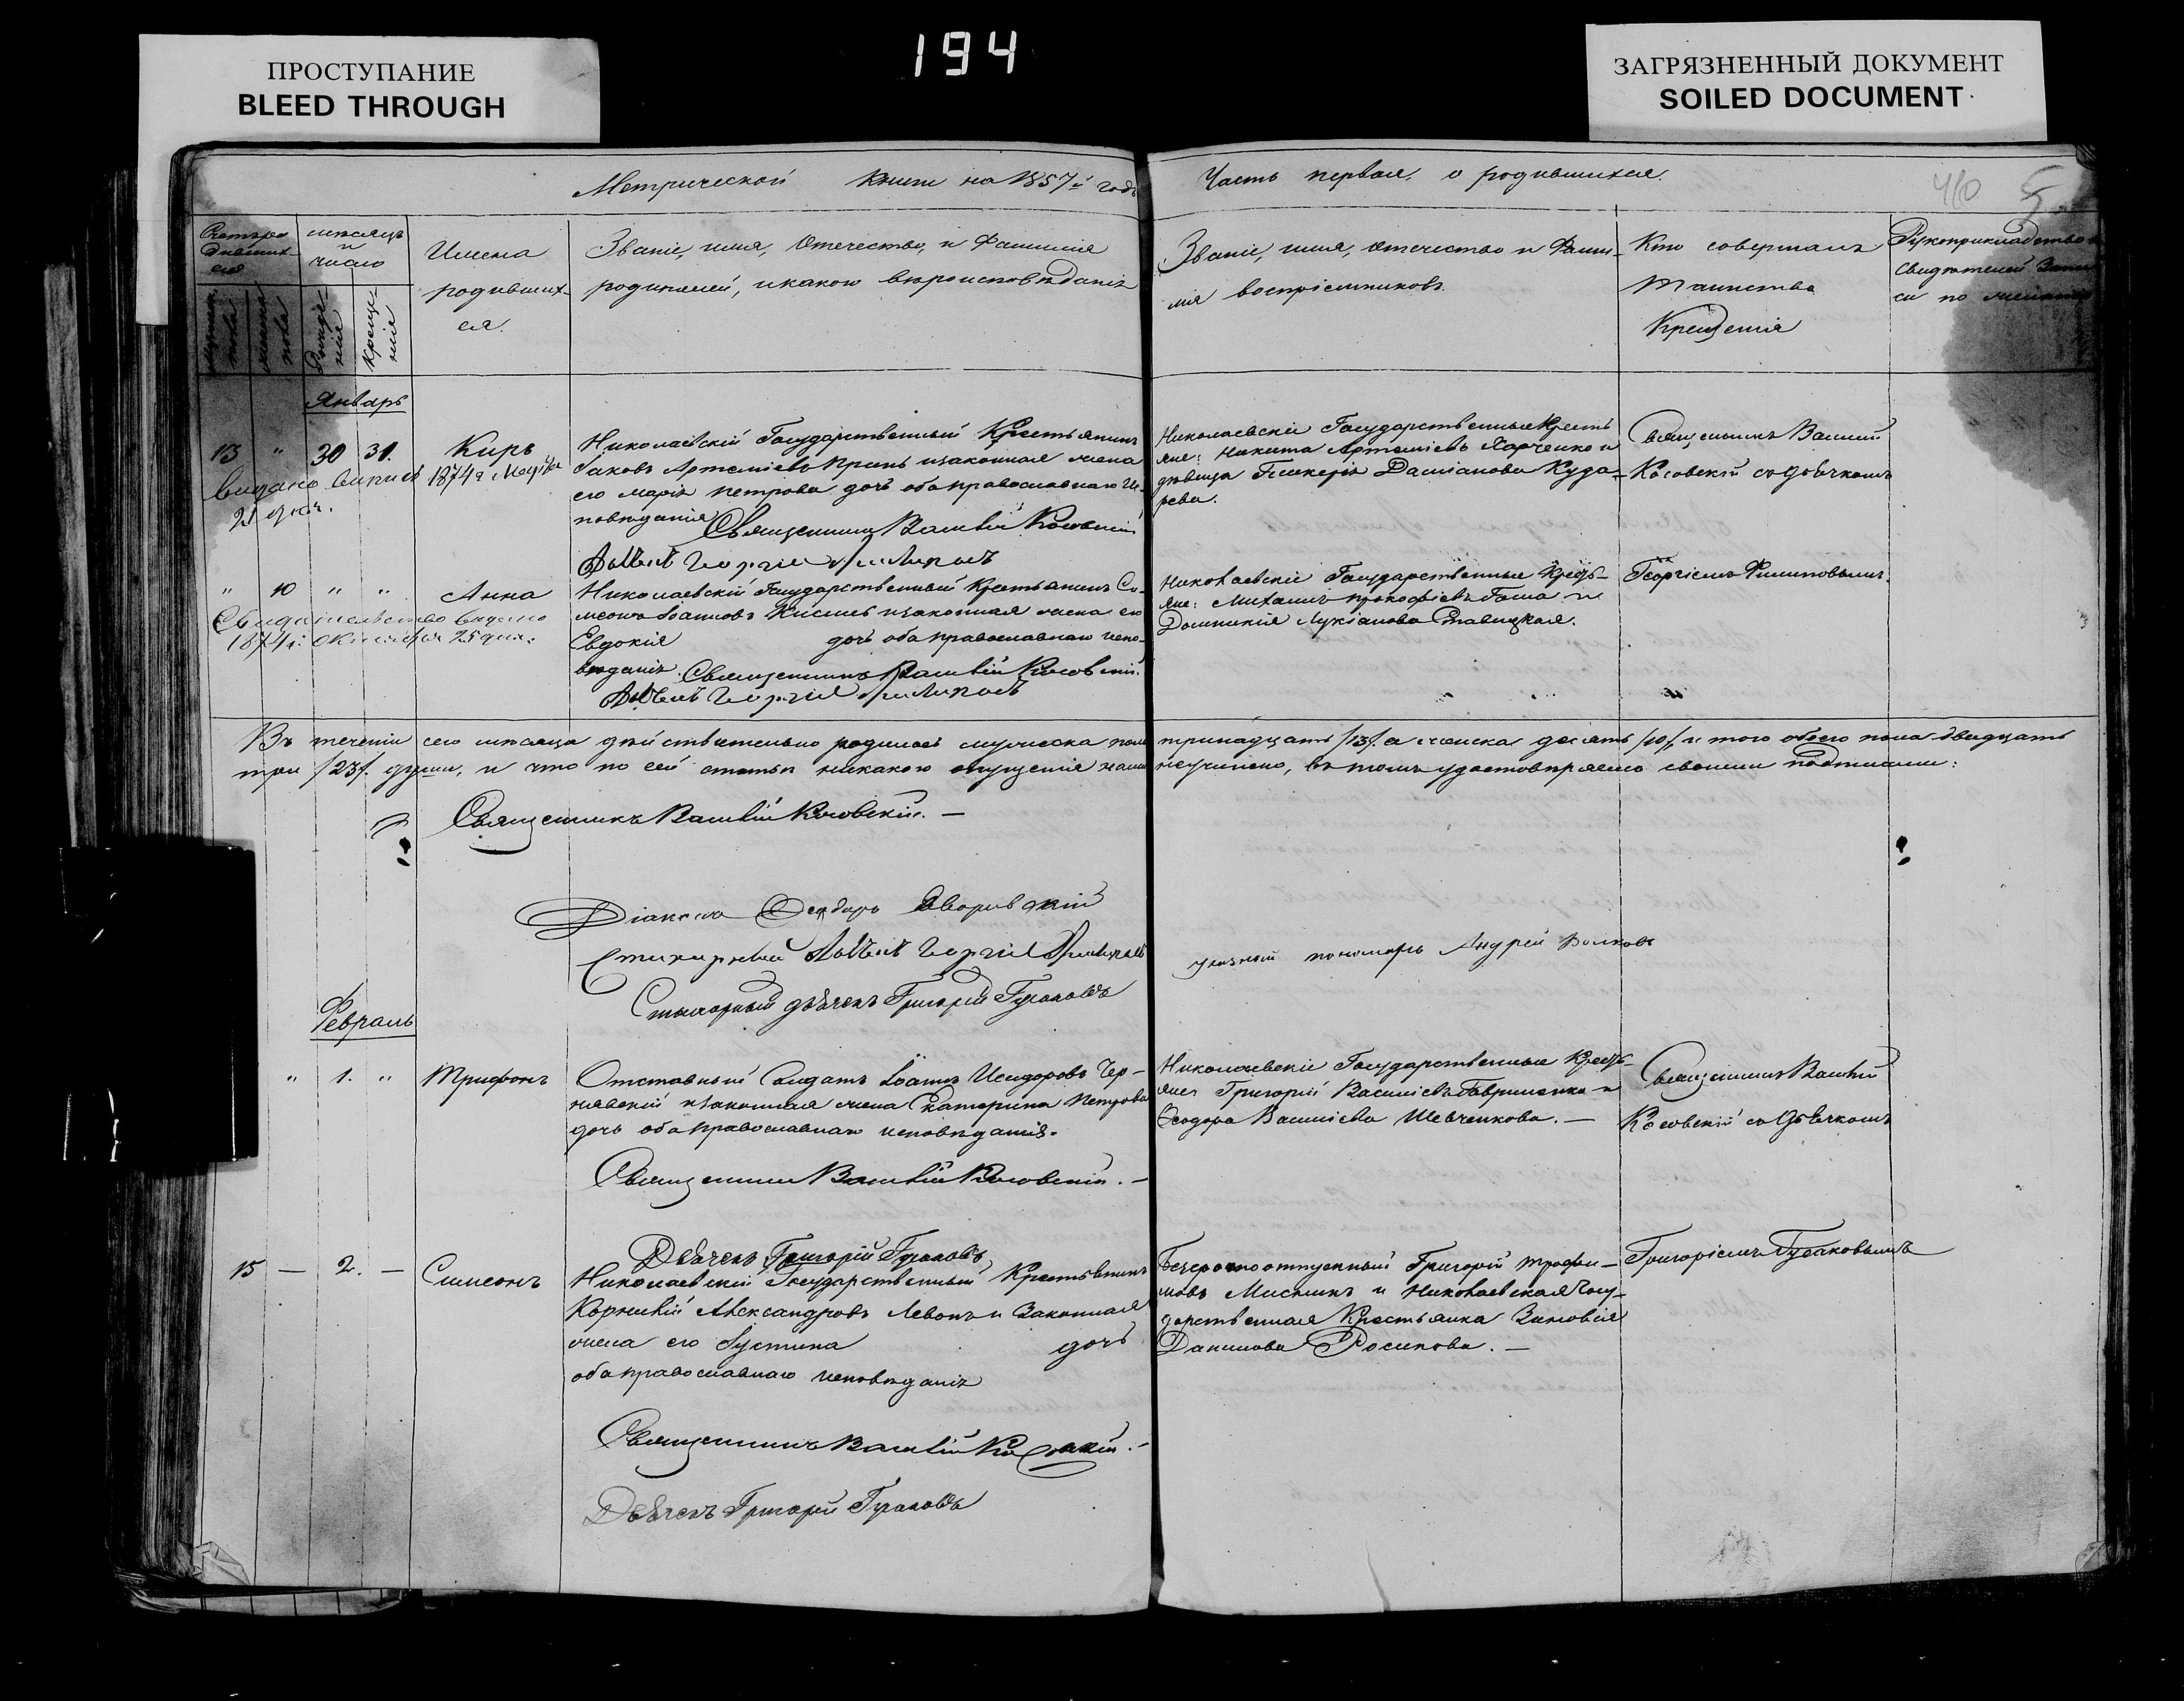 ПРОСТУПАНИЕ
BLEED THROUGH
194
ЗАГРЯЗНЕННЫЙ ДОКУМЕНТ
SOILED DOCUMENT
Метрической Книги на 1857й годъ
Часть первая о родившихся.
410
5
Счетъ ро
дивших
ся
мѣсяцъ
и
число
Имена
родивших-
ся.
Званіе, имя, Отечество, и Фамилія
родителей, и какого вѣроисповѣданія
Званіе, имя, отечество и Фами-
лія воспріемниковъ.
Кто совершалъ
таинство
Крещенія
Рукоприкладство
свидѣтелей запи
си по желанію
рожде-
нія
креще-
нія
Январь
13 " 30 31. Киръ
Выдана выпись 1874 г
21 дня.
Николаевскій Государственный Крестьянинъ
Іаковъ Артеміевъ и законная жена
его Марія Петрова дочь оба православнаго Ис-
повѣданія
Священникъ Василій Косовскій
Дьячекъ Георгій Филиповъ
Николаевскіе Государственные Кресть
яне: Никита Артеміевъ Харченко и
дѣвица Гликерія Даміанова Куда-
рева.
Священникъ Василій
Косовскій со дьячкомъ
" 10 " " Анна
Свидѣтельство выдано
1874 г. октября 25 дня.
Николаевскій Государственный Крестьянинъ Си-
меонъ Іоанновъ и законная жена его
Евдокія дочь оба православнаго испо-
вѣданія Священникъ Василій Косовскій.
Дьячекъ Георгій Филиповъ
Николаевскіе Государственные Кресть-
яне: Михаилъ Прокофіевъ и
Домникія Лукіанова
Георгіемъ Филиповымъ.
Въ теченіи сего мѣсяца дѣйствительно родилось мужеска пола тринадцать /13/. а женска десять /10/, и того обоего пола двадцать
три /23/. души, и что по сей статьи никакого опущенія нами неучинено, въ томъ удостовѣряемъ своими подписами:
Священникъ Василій Косовскій. —
Діаконъ Ѳеодоръ Яворивскій
Стихарный Дьячекъ Георгій Филиповъ
указной пономарь Андрей Волковъ
Стихарный дьячекъ Григорій Гусаковъ
Февраль
" 1. " Трифонъ
Отставный Солдатъ Іоаннъ Исидоровъ Чер-
нявскій и законная жена Екатерина Петрова
дочь оба православнаго исповѣданія.
Священникъ Василій Косовскій. —
Дьячекъ Григорій Гусаковъ
Николаевскіе Государственные Кресть-
яне Григорій Василіевъ Гавриленко и
Ѳеодора Василіева Шевченкова. —
Священникъ Василій
Косовскій со Дьячкомъ
Григоріемъ Гусаковымъ
15 — 2. — Симеонъ
Николаевскій Государственный Крестьянинъ
Корнилій Александровъ и Законная
жена его Іустина дочь
оба православнаго исповѣданія
Священникъ Василій Косовскій. —
Дьячекъ Григорій Гусаковъ
Безсрочноотпускный Григорій Трофи-
мовъ и Николаевская Госу-
дарственная Крестьянка Зиновія
Данилова Росикова. —